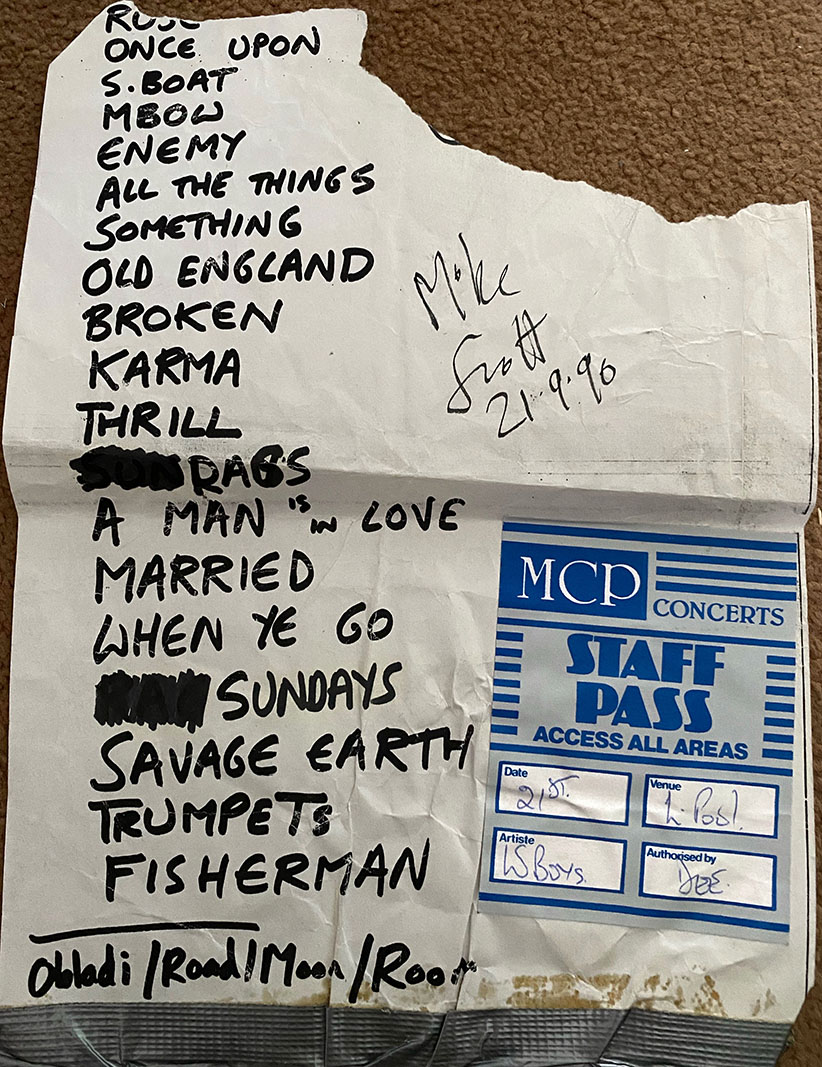 ONCE UPON
S. BOAT
MBOW
ENEMY
ALL THE THINGS
SOMETHING
OLD ENGLAND
BROKEN
KARMA
THRILL
RAGS
A MAN IS IN LOVE
MARRIED
WHEN YE GO
SUNDAYS
SAVAGE EARTH
TRUMPETS
FISHERMAN
Obladi / Road / Moon / Room
Mike
Scott
21.9.90
MCP CONCERTS
STAFF
PASS
ACCESS ALL AREAS
Date
21ST.
Venue
L.Pool.
Artiste
W Boys.
Authorised by
DEE.